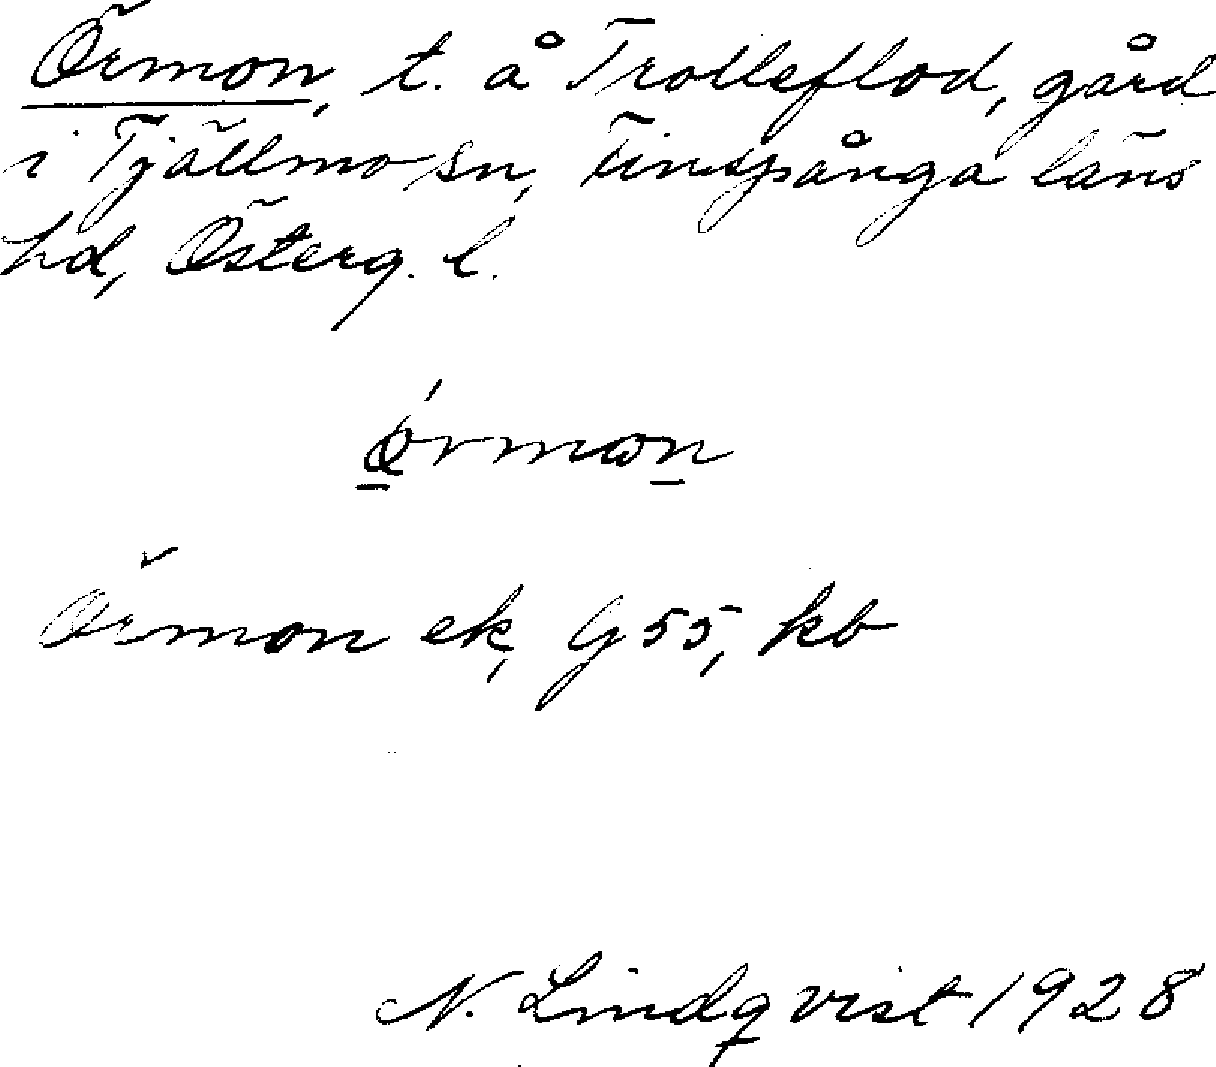 Örmon, t. å Trolleflod, gård
i Tjällmo sn, Finspånga läns
hd, Österg. l.
ǿrmωn
Örmon ek, G 55, kb
N. Lindqvist 1928